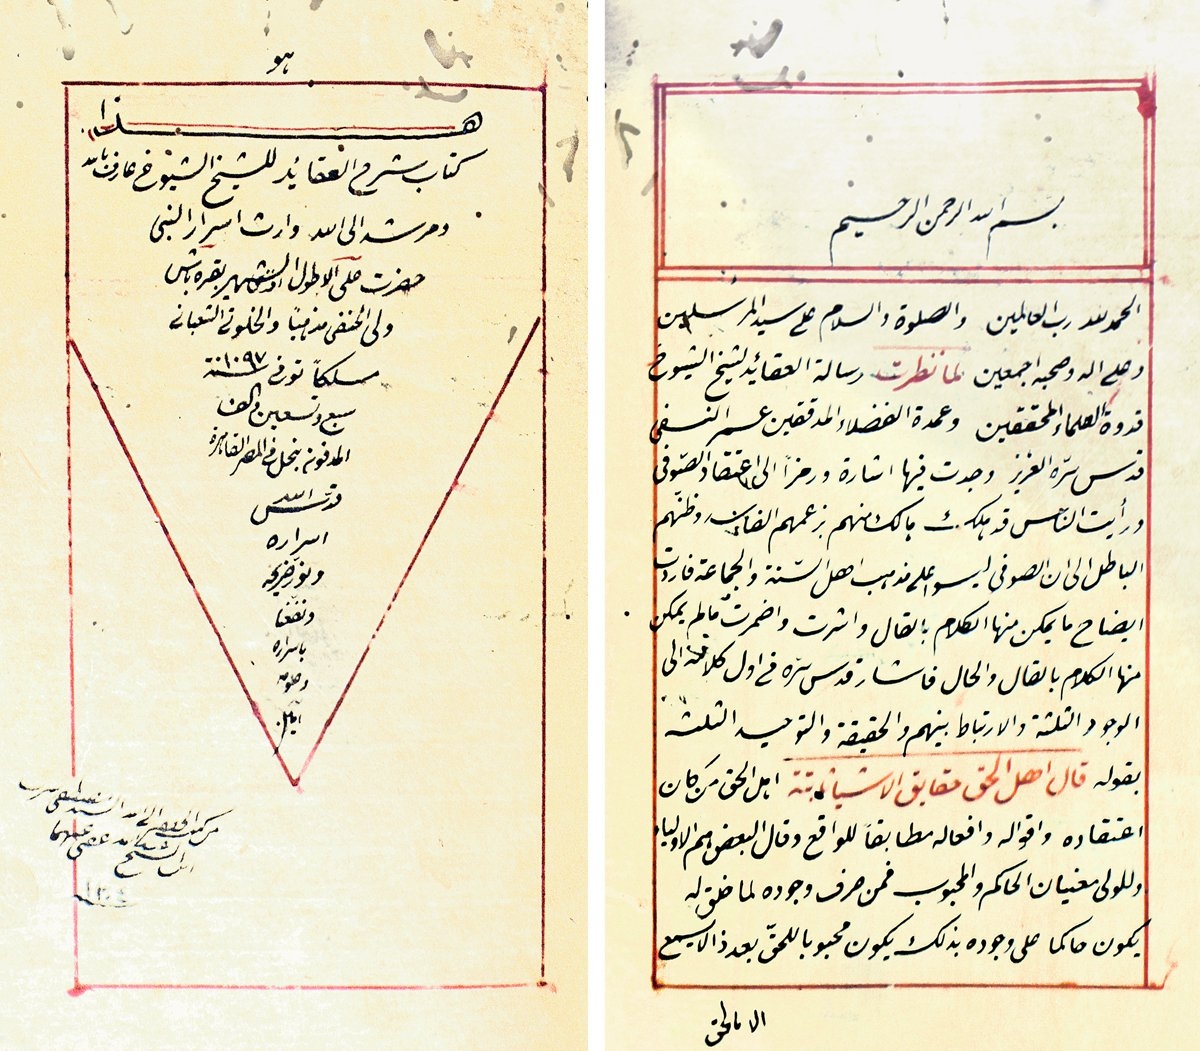 هو
هذا
كتاب شرح العقائد للشيخ الشيوخ عارف بالله
ومرشد الى الله وارث اسرار النبي
حضرت على الاطول الشهير بقره باش
ولى الحنفى مذهبا والخلوتى الشعبانى
مسلكاً توفى سنة ١٠٩٧
سبع وتسعين والف
المدفون بنخل فى المصر القاهرة
قدس الله
اسراره
ونور ضريحه
ونفعنا
باسراره
وعلومه
امين
بسم الله الرحمن الرحيم
الحمد لله رب العالمين والصلوة والسلام على سيد المرسلين
وعلى اله وصحبه اجمعين لما نظرت رسالة العقائد لشيخ الشيوخ
قدوة العلماء المحققين وعمدة الفضلاء المدققين عمر النسفى
قدس سرّه العزيز وجدت فيها اشارة ورمزاً الى اعتقاد الصّوفى
ورأيت النّاس قد هلك هالك منهم بزعمهم الفاسد وظنّهم
الباطل الى ان الصوفى ليسوا على مذهب اهل السّنة والجماعة فاردت
ايضاح ما يمكن منها الكلام بالقال واشرت واضمرت ما لم يمكن
منها الكلام بالقال والحال فاشار قدس سرّه فى اول كلامه الى
الوجود الثلثة والارتباط بينهم والحقيقة والتوحيد الثلثه
بقوله قال اهل الحق حقايق الاشياء ثابتة اهل الحق من كان
اعتقاده واقواله وافعاله مطابقاً للواقع وقال البعض هم الاولياء
وللولى معنيان الحاكم والمحبوب فمن صرف وجوده لما خلق له
يكون حاكما على وجوده بذلك يكون محبوبا للحقّ بعد ذا لا يسمع
الا بالحق